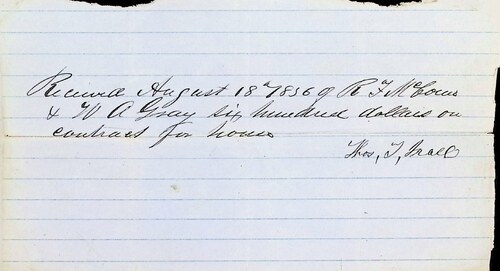 Received August 18th 1856 of R F
& W A Gray six hundred dollars on
contract for house
Thos, J,